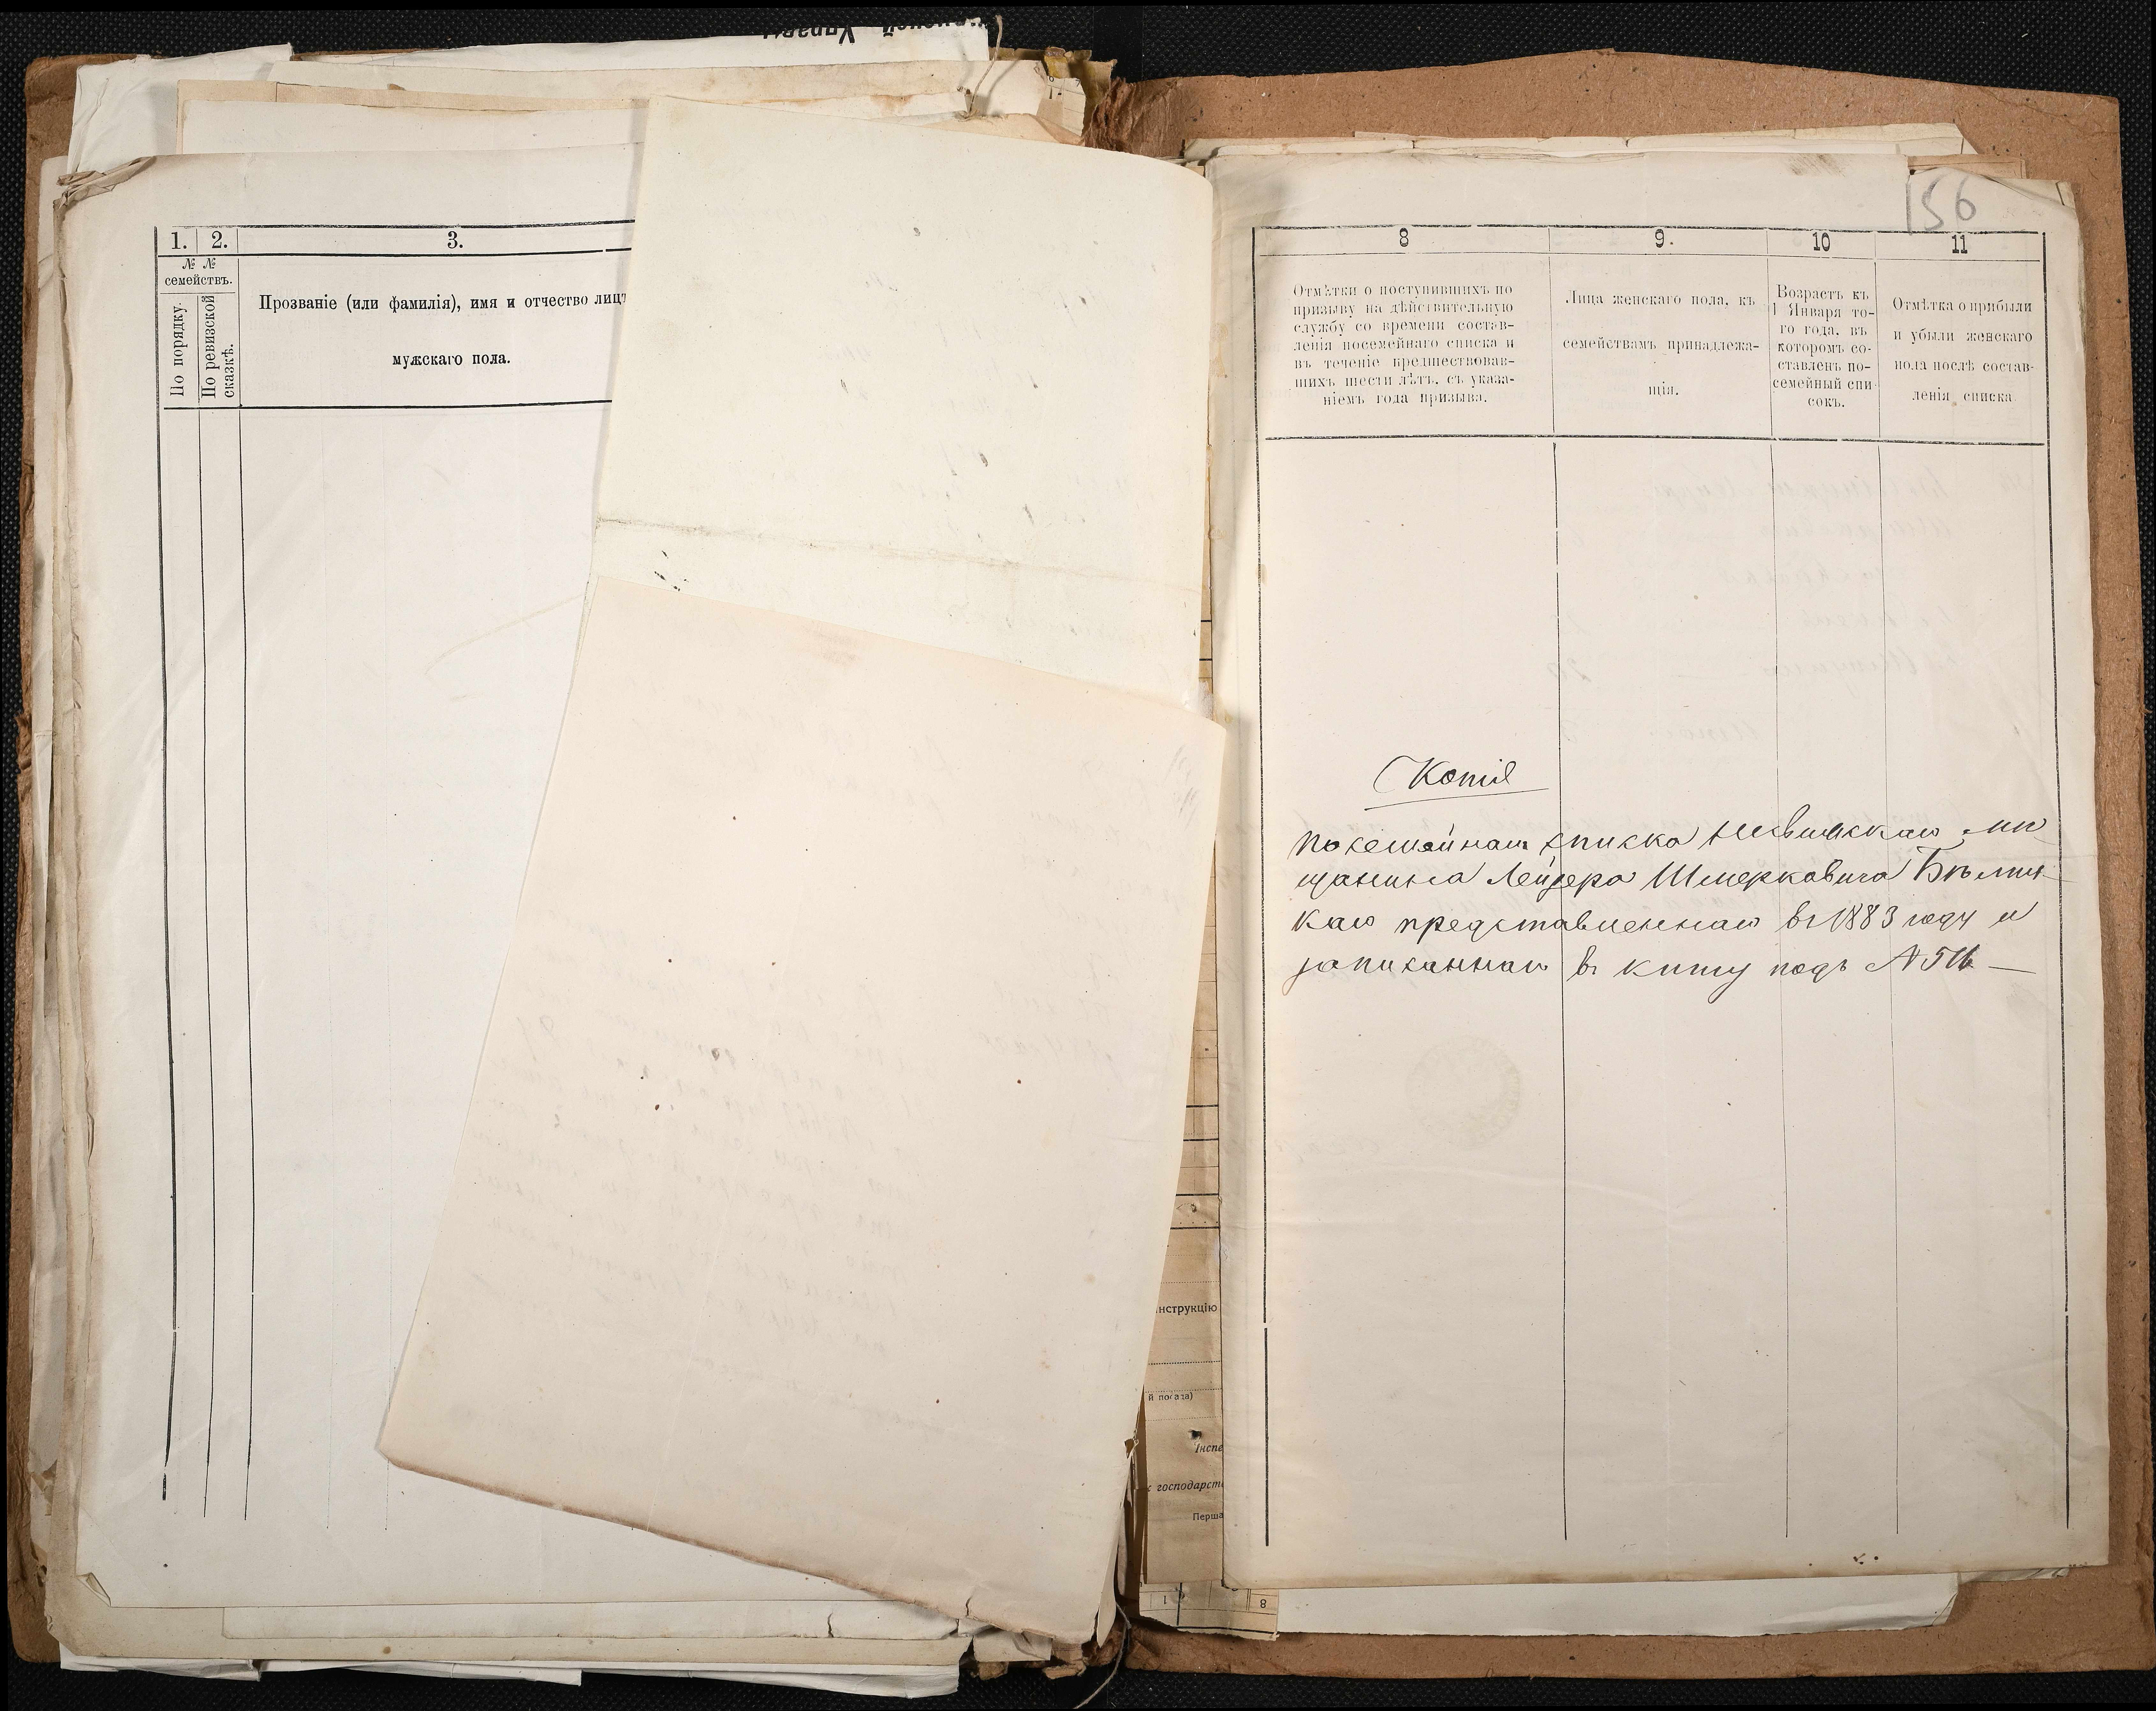 1.
2.
3.
№ №
семействъ.
По порядку.
По ревизской
сказкѣ.
Прозваніе (или фамилія), имя и отчество лицъ
мужскаго пола.
156
8
9.
10
11
Отмѣтки о поступившихъ по
призыву на дѣйствительную
службу со времени состав-
ленія посемейнаго списка и
въ теченіе предшествовав-
шихъ шести лѣтъ, съ указа-
ніемъ года призыва.
Лица женскаго пола, къ
семействамъ принадлежа-
щія.
Возрастъ къ
1 Января то-
го года, въ
которомъ со-
ставленъ по-
семейный спи-
сокъ.
Отмѣтка о прибыли
и убыли женскаго
пола послѣ состав-
ленія списка
Копія
посемейнаго списка мѣ
щанина Лейзера Шмерковича Бѣлиц
каго представленнаго въ 1883 году и
записаннаго въ книгу подъ №
нструкцію
й посада)
Інспе
господарст
Перша
8